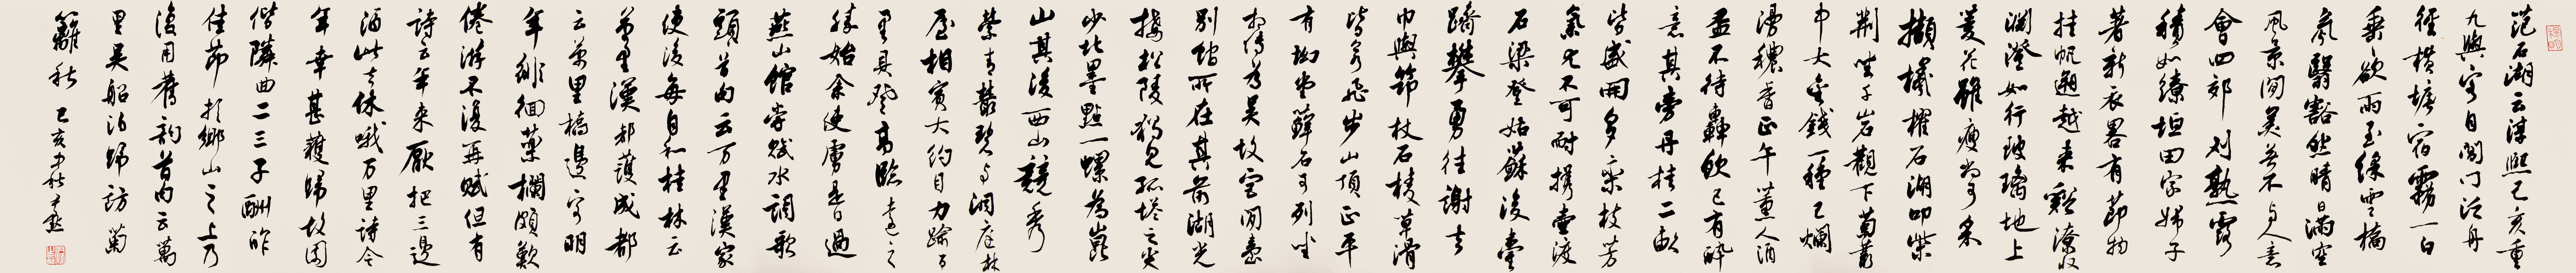 范石湖云淳熙己亥重
九與客自閶門泛舟
徑橫塘宿霧一白
垂欲雨至綵雲橋
氛翳豁然晴日滿空
風景閒美無不與人意
會四郊刈熟露
積如繚垣田家婦子
著新衣畧有節物
挂帆遡越來谿潦收
淵澄如行玻璃地上
菱花雖瘦尚可采
擷檥櫂石湖叩柴
荆坐千岩觀下菊叢
中大金錢一種已爛
漫穠香正午薰人酒
盃不待轟飲已有醉
意其旁丹桂二畝
皆盛開多欒枝芳
氣尤不可耐攜壺渡
石梁登姑蘇後臺
躋攀勇往謝去
巾輿筇杖石稜草滑
皆若飛步山頂正平
有拗堂蘚石可列坐
相傳為吳故宮閒臺
別館所在其前湖光
接松陵獨見孤塔之尖
少北墨點一螺為崑
山其後西山競秀
縈青叢碧與洞庭林
屋相賓大約目力踰百
里具登高臨遠之
勝始余使虜是日過
燕山館嘗賦水調歌
頭首句云万里漢家
使後每自和桂林云
万里漢都護成都
云萬里橋邊客明
年徘徊藥欄頗歎
倦游不復再賦但有
詩云年來厭把三邊
酒此去休哦万里詩今
年幸甚獲歸故園
偕隣曲二三子酬酢
佳節於鄉山之上乃
復用舊韵首句云萬
里吳船泊歸訪菊
籬秋 己亥中秋